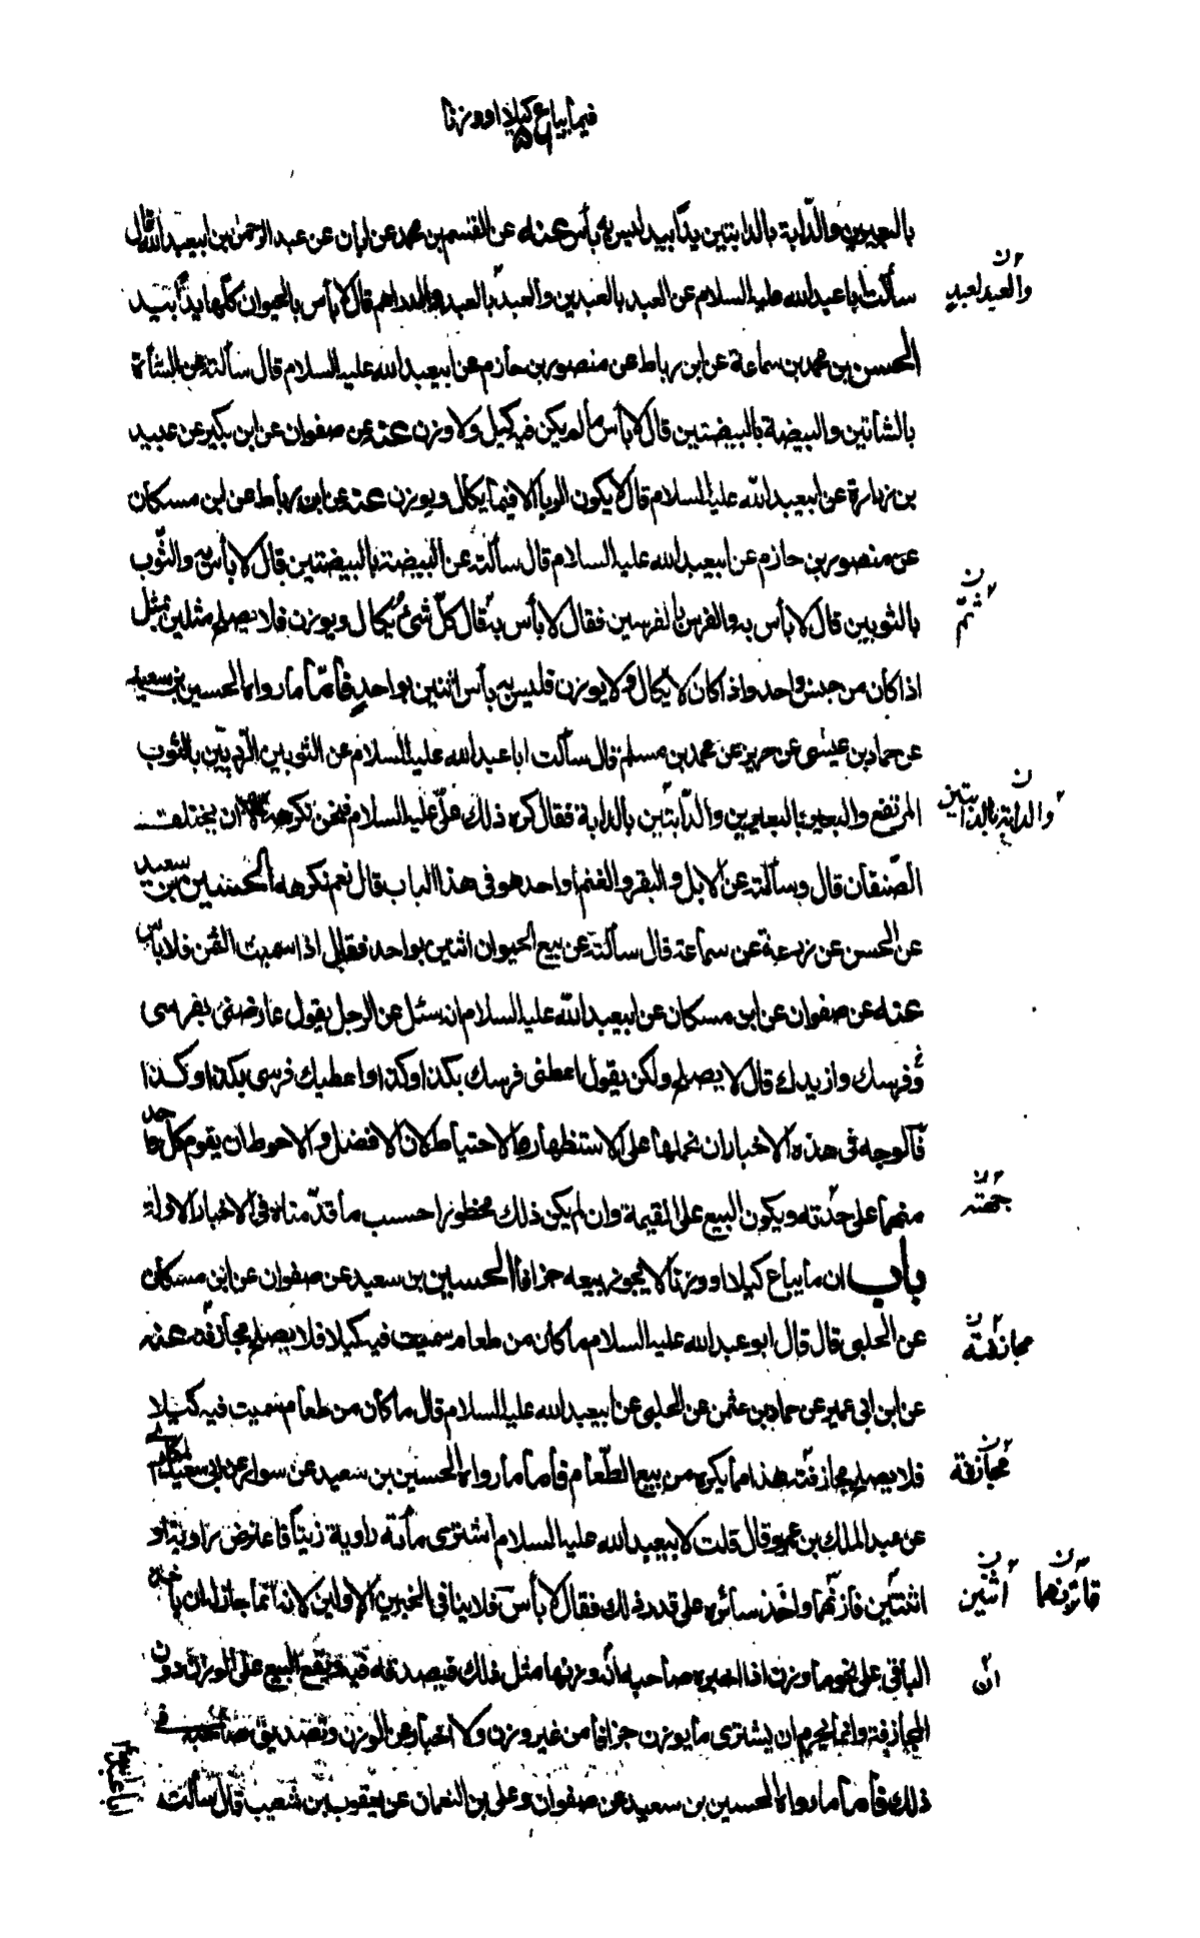 فيما يباع كيلا او وزنا
٥٦
بالبعيرين والدّابة بالدابتين يدًا بيد ليس به بأس عنه عن القسم بن محمد عن ابان عن عبد الرّحمن بن ابيعبد الله قال
سألت ابا عبد الله عليه السلام عن العبد بالعبدين والعبد بالعبد والدراهم قال لا بأس بالحيوان كلّها يدًا بيد
والعبد لعبد
الحسن بن محمد بن سماعة عن ابن رباط عن منصور بن حازم عن ابيعبد الله عليه السلام قال سألته عن الشاة
بالشاتين والبيضة بالبيضتين قال لا بأس ما لم يكن فيه كيل ولا وزن عنه عن صفوان عن ابن بكير عن عبيد
بن زرارة عن ابيعبد الله عليه السلام قال لا يكون الربا الا فيما يكال ويوزن عنه عن ابن رباط عن ابن مسكان
عن منصور بن حازم عن ابيعبد الله عليه السلام قال سألته عن البيضة بالبيضتين قال لا بأس به والثّوب
بالثوبين قال لا بأس به والفرس بالفرسين فقال لا بأس به قال كلّ شئ يُكال ويوزن فلا يصلح مثلين بمثل
ثمّ
اذا كان من جنس واحد واذا كان لا يكال ولا يوزن فليس به بأس اثنين بواحدٍ فأمّا ما رواه الحسين بن سعيد
عن حماد بن عيسى عن حريز عن محمد بن مسلم قال سألت ابا عبد الله عليه السلام عن الثوبين الرديّين بالثوب
المرتفع والبعير بالبعيرين والدّابتين بالدابة فقال كره ذلك علىّ عليه السلام فنحن نكرهه الا ان يختلف
والدابة بالدابتين
الصّنفان قال وسألته عن الابل والبقر والغنم او احد هو فى هذا الباب قال نعم نكرهه الحسين بن سعيد
عن الحسن عن زرعة عن سماعة قال سألته عن بيع الحيوان اثنين بواحد فقال اذا سميت الثمن فلا بأس
عنه عن صفوان عن ابن مسكان عن ابيعبد الله عليه السلام انه سئل عن الرجل يقول عارضنى بفرسى
وفرسك وازيدك قال لا يصلح ولكن يقول اعطنى فرسك بكذا وكذا واعطيك فرسى بكذا وكذا
فالوجه فى هذه الاخبار ان نحملها على الاستظهار والاحتياط لان الافضل والاحوط ان يقوم كل واحد
منهما على حدته ويكون البيع على القيمة وان لم يكن ذلك محظورا حسب ما قدّمناه فى الاخبار الاولة
جهته
باب ان ما يباع كيلا او وزنا لا يجوز بيعه جزافا الحسين بن سعيد عن صفوان عن ابن مسكان
عن الحلبى قال قال ابو عبد الله عليه السلام ما كان من طعام سميت فيه كيلا فلا يصلح مجازفة عنه
مجازفته
عن ابن ابى عمير عن حماد بن عثمن عن الحلبى عن ابيعبد الله عليه السلام قال ما كان من طعام سميت فيه كيلا
فلا يصلح مجازفته هذا مما يكره من بيع الطّعام فأما ما رواه الحسين بن سعيد عن سوار عن ابى سعيد المكارى
مجازفة
عن عبد الملك بن عمرو قال قلت لابيعبد الله عليه السلام اشترى مأئة راوية زيتًا فاعترض راوية او
اثنتين فازنهما واخذ سائره على قدر ذلك فقال لا بأس فلا ينافى الخبرين الاولين لانه انّما جاز له ان يأخذ
اثنين
فأتزنهما
الباقى على نحو ما وزن اذا اخبره صاحبه انّ وزنها مثل ذلك فيصدقه فيه فيقع البيع على الوزن دون
انّ
المجازفة وانما يحرم ان يشترى ما يوزن جزافا من غير وزن ولا اخبار عن الوزن وتصديق صاحبه فى
ذلك فأما ما رواه الحسين بن سعيد عن صفوان وعلى بن النعمان عن يعقوب بن شعيب قال سألته